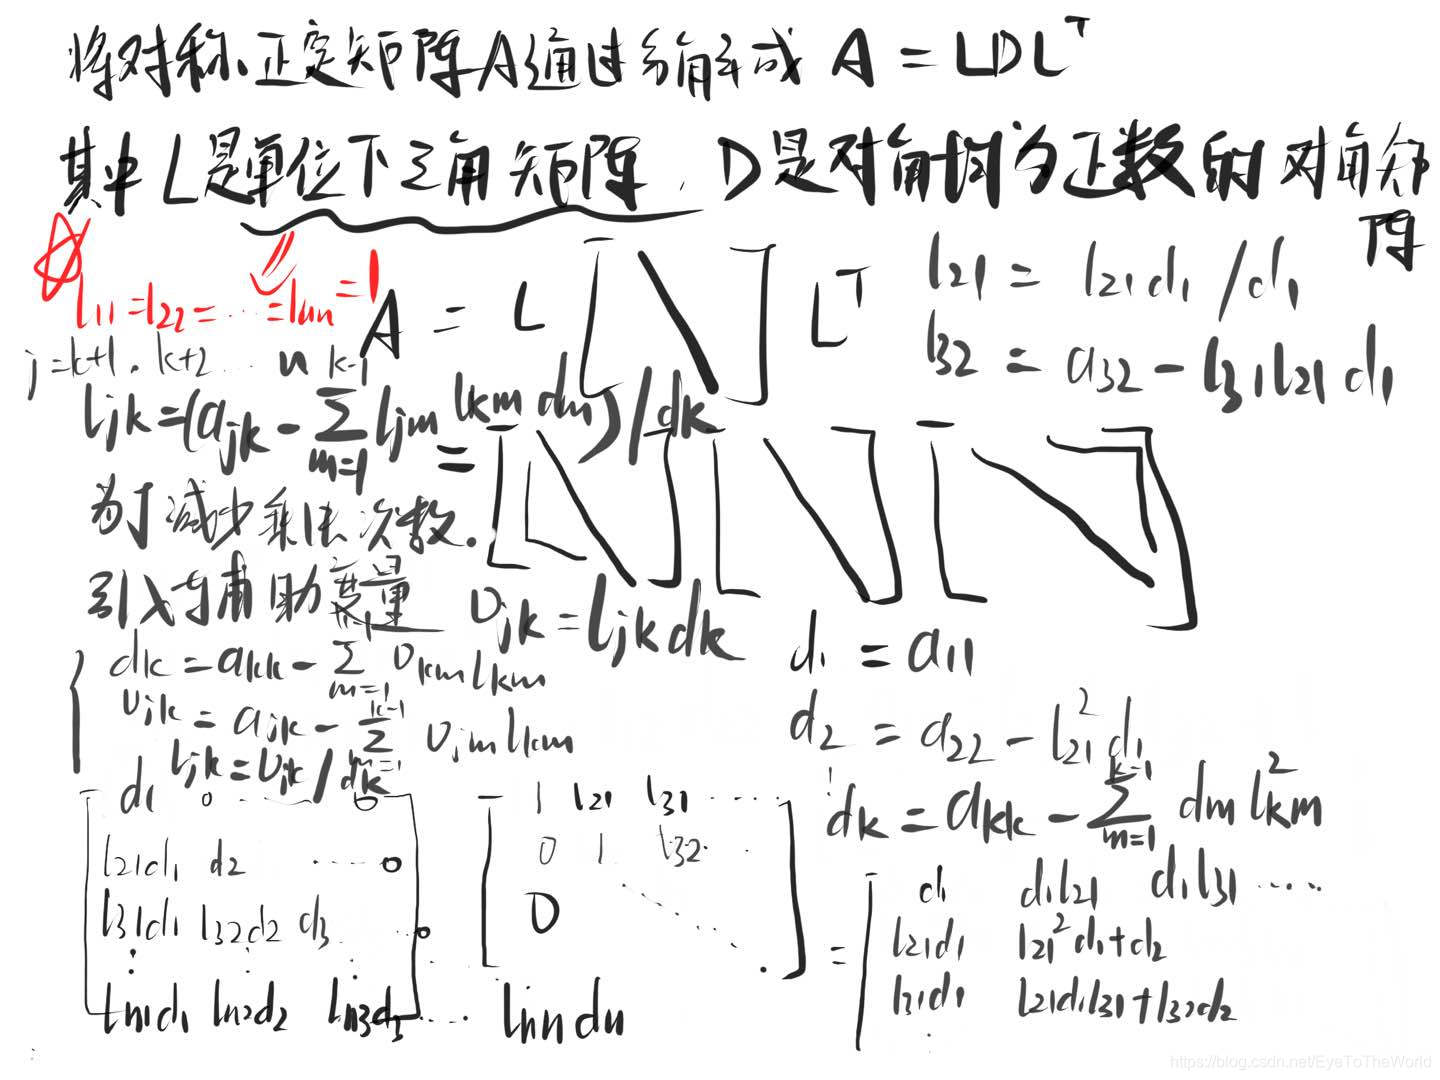 将对称、正定矩阵A通过分解成 A = LDLᵀ
其中 L是单位下三角矩阵, D是对角均为正数的对角矩
阵
l11=l22=…=lnn=1
A = L [ \ ] Lᵀ
l21 = l21d1/d1
l32 = a32 - l31l21d1
j=k+1, k+2 … n
ljk=(ajk - Σ_{m=1}^{k-1} ljm lkm dm)/dk
=
为了减少乘法次数.
引入与辅助变量 υjk = ljk dk
dk = akk - Σ_{m=1}^{k-1} υkm lkm
υjk = ajk - Σ_{m=1}^{k-1} υjm lkm
ljk = υjk / dk
d1 = a11
d2 = a22 - l21² d1
dk = akk - Σ_{m=1}^{k-1} dm lkm²
d1 0 … 0
l21d1 d2 … 0
l31d1 l32d2 d3 … 0
⋮
ln1d1 ln2d2 ln3d3 … lnndn
1 l21 l31 …
0 1 l32 …
0
=
d1 d1l21 d1l31 …
l21d1 l21²d1+d2
l31d1 l21d1l31+l32d2
https://blog.csdn.net/EyeToTheWorld